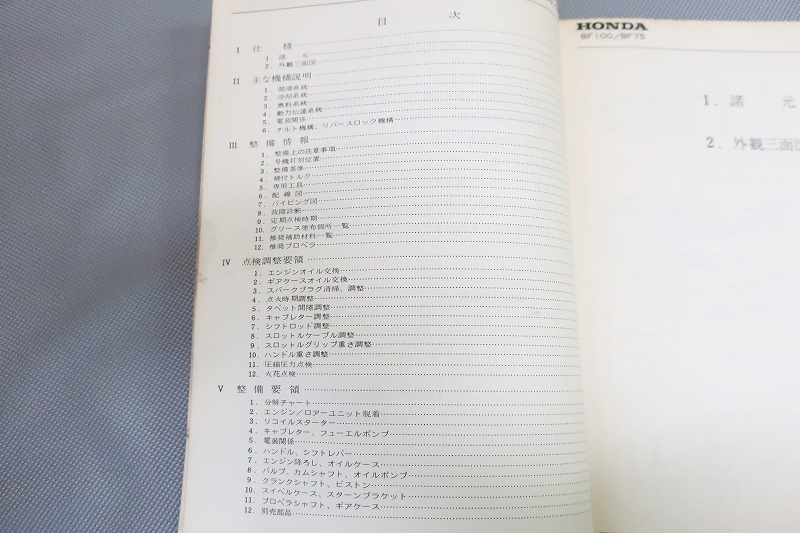 目 次
Ⅰ 仕 様
1. 諸 元
2. 外観三面図
Ⅱ 主な機構説明
1. 潤滑系統
2. 冷却系統
3. 燃料系統
4. 動力伝達系統
5. 電装関係
6. チルト機構、リバースロック機構
Ⅲ 整 備 情 報
1. 整備上の注意事項
2. 号機打刻位置
3. 整備基準
4. 締付トルク
5. 専用工具
6. 配 線 図
7. パイピング図
8. 故障診断
9. 定期点検時期
10. グリース塗布個所一覧
11. 推奨補助材料一覧
12. 推奨プロペラ
Ⅳ 点検調整要領
1. エンジンオイル交換
2. ギアケースオイル交換
3. スパークプラグ清掃、調整
4. 点火時期調整
5. タペット間隙調整
6. キャブレター調整
7. シフトロッド調整
8. スロットルケーブル調整
9. スロットルグリップ重さ調整
10. ハンドル重さ調整
11. 圧縮圧力点検
12. 火花点検
Ⅴ 整 備 要 領
1. 分解チャート
2. エンジン/ロアーユニット脱着
3. リコイルスターター
4. キャブレター、フューエルポンプ
5. 電装関係
6. ハンドル、シフトレバー
7. エンジン降ろし、オイルケース
8. バルブ、カムシャフト、オイルポンプ
9. クランクシャフト、ピストン
10. スイベルケース、スターンブラケット
11. プロペラシャフト、ギアケース
12. 別売部品
HONDA
BF100/BF75
1. 諸 元
2. 外観三面図